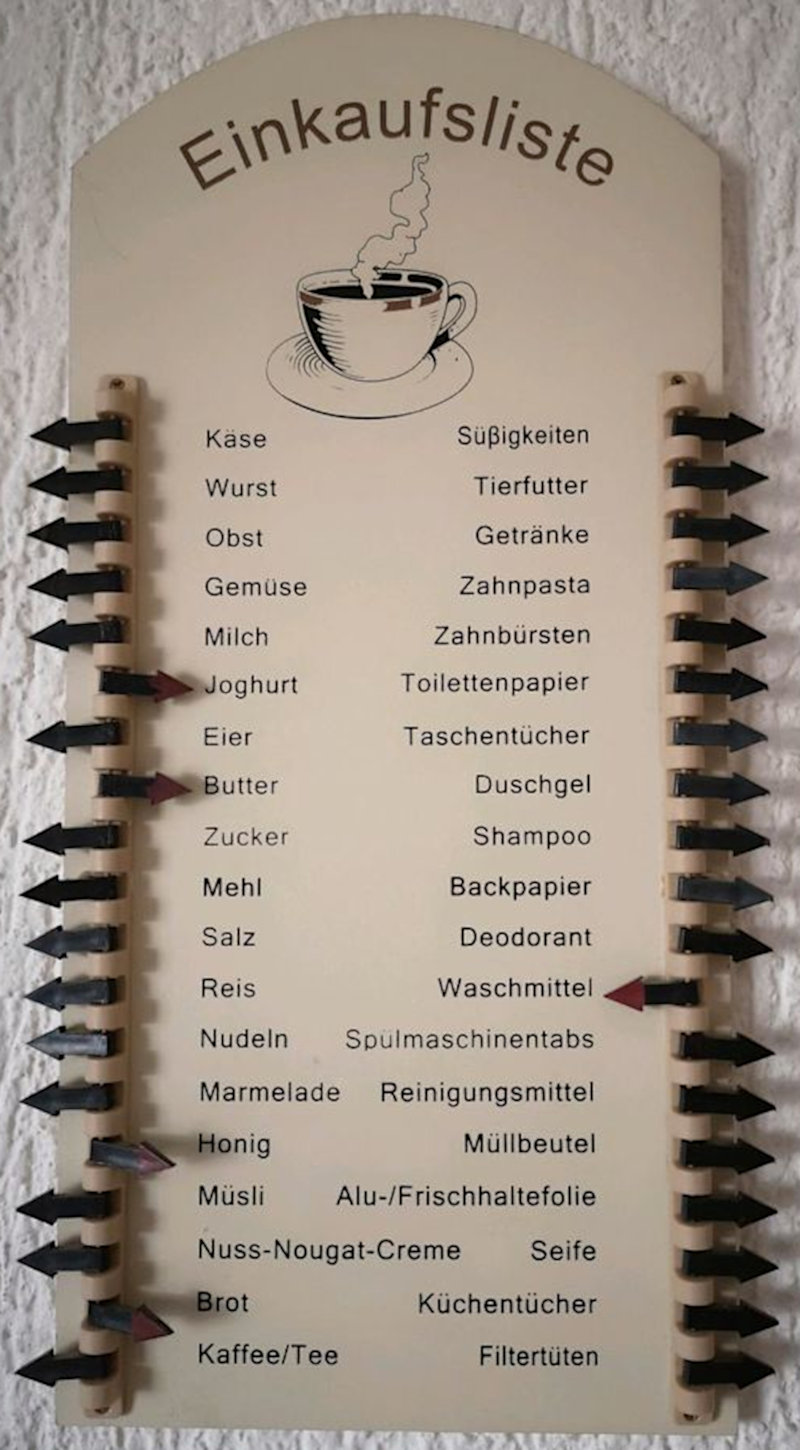 Einkaufsliste
Käse Süßigkeiten
Wurst Tierfutter
Obst Getränke
Gemüse Zahnpasta
Milch Zahnbürsten
Joghurt Toilettenpapier
Eier Taschentücher
Butter Duschgel
Zucker Shampoo
Mehl Backpapier
Salz Deodorant
Reis Waschmittel
Nudeln Spülmaschinentabs
Marmelade Reinigungsmittel
Honig Müllbeutel
Müsli Alu-/Frischhaltefolie
Nuss-Nougat-Creme Seife
Brot Küchentücher
Kaffee/Tee Filtertüten